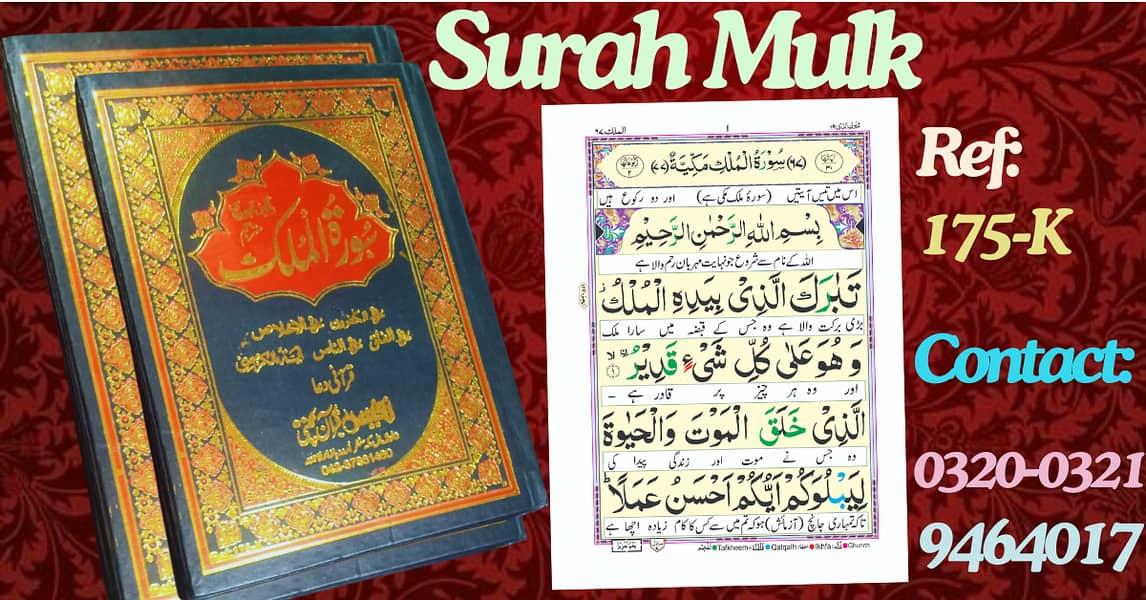 Surah Mulk
سورة الملك
قرآنی دعا
042-37361460
الملك ٦٧
١
(٦٧) سُوْرَةُ الْمُلْكِ مَكِّيَّةٌ (٧٧)
اس میں تیس آیتیں (سورۂ ملک مکی ہے) اور دو رکوع ہیں
بِسْمِ اللهِ الرَّحْمٰنِ الرَّحِيْمِ
اللہ کے نام سے شروع جو نہایت مہربان رحم والا ہے
تَبٰرَكَ الَّذِىْ بِيَدِهِ الْمُلْكُ
بڑی برکت والا ہے وہ جس کے قبضہ میں سارا ملک
وَ هُوَ عَلٰى كُلِّ شَىْءٍ قَدِيْرُ
اور وہ ہر چیز پر قادر ہے ۔
الَّذِىْ خَلَقَ الْمَوْتَ وَالْحَيٰوةَ
وہ جس نے موت اور زندگی پیدا کی
لِيَبْلُوَكُمْ اَيُّكُمْ اَحْسَنُ عَمَلًا
تاکہ تمہاری جانچ (آزمائش) ہو کہ تم میں سے کس کا کام زیادہ اچھا ہے
Tafkheem Qalqalh Ikhfa Ghunnh
Ref:
175-K
Contact:
0320-0321
9464017